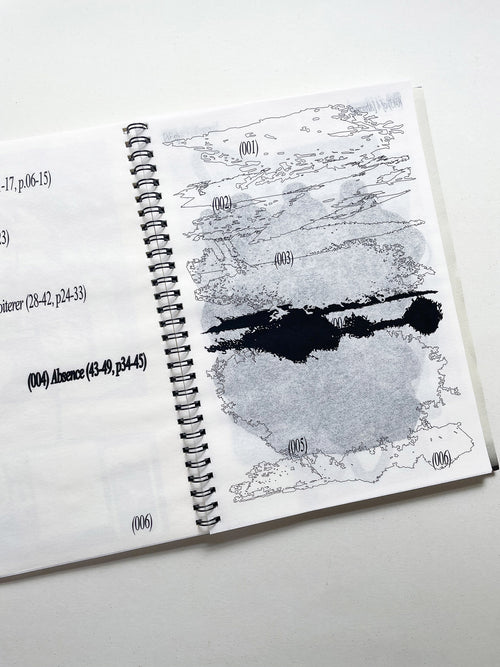 -17, p.06-15)
3)
oiterer (28-42, p24-33)
(004) Absence (43-49, p34-45)
(006)
(001)
(002)
(003)
(005)
(006)